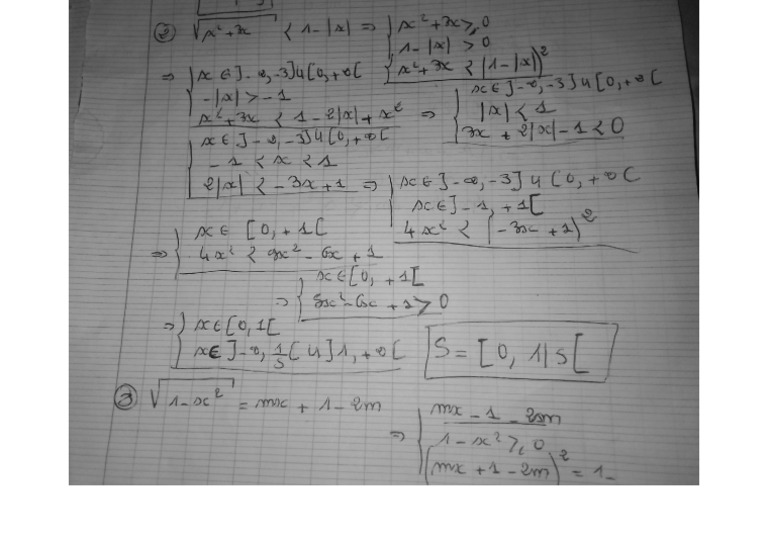 ② √(x²+3x) < 1-|x| ⇒ { x²+3x ≥ 0
1-|x| > 0
x²+3x < (1-|x|)²
⇒ { x ∈ ]-∞,-3] ∪ [0,+∞[
-|x| > -1
x²+3x < 1-2|x|+x²
⇒ { x ∈ ]-∞,-3] ∪ [0,+∞[
|x| < 1
3x + 2|x| - 1 < 0
{ x ∈ ]-∞,-3] ∪ [0,+∞[
-1 < x < 1
2|x| < -3x+1
⇒ { x ∈ ]-∞,-3] ∪ [0,+∞[
x ∈ ]-1,+1[
4x² < (-3x+1)²
⇒ { x ∈ [0,+1[
4x² < 9x² - 6x + 1
⇒ { x ∈ [0,+1[
5x²-6x+1 > 0
⇒ { x ∈ [0,1[
x ∈ ]-∞, 1/5[ ∪ ]1,+∞[
S = [0, 1/5[
③ √(1-x²) = mx + 1-2m
⇒ { mx - 1 - 2m
1-x² ≥ 0
(mx+1-2m)² = 1-